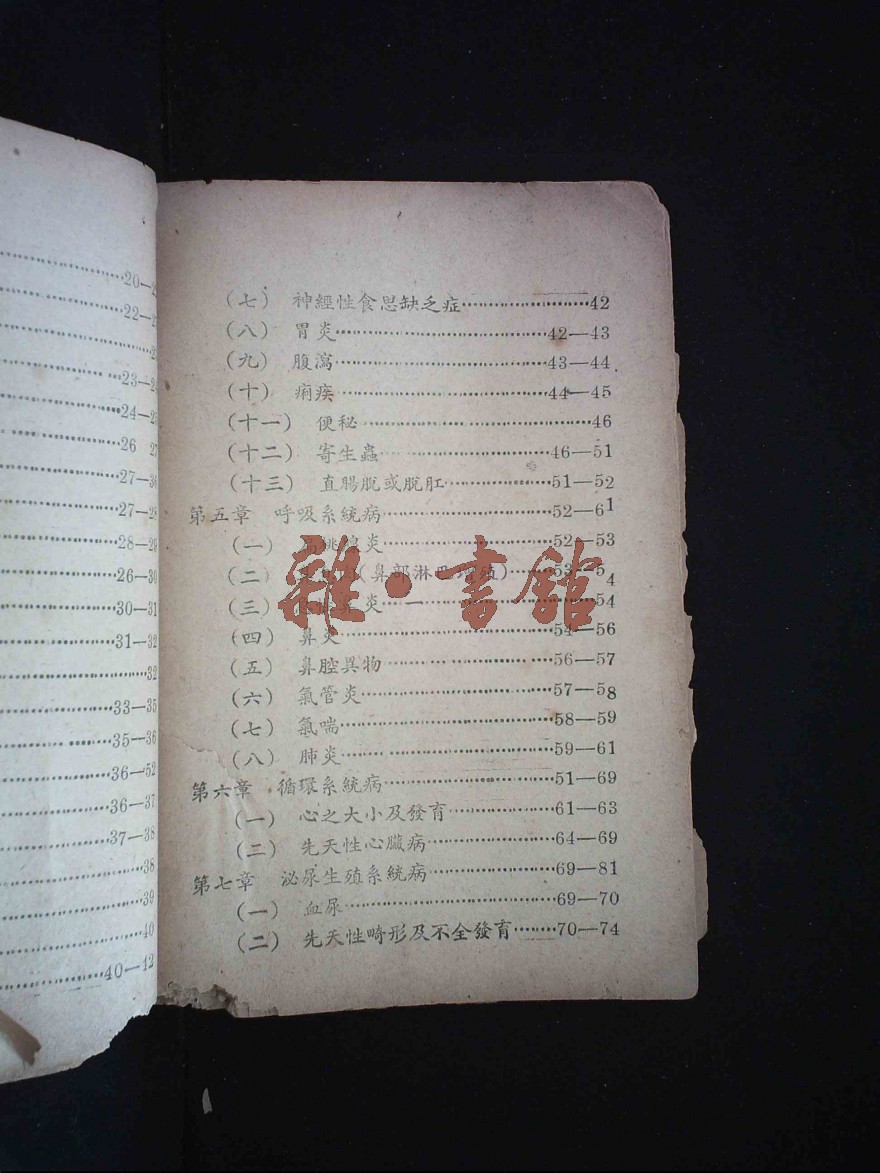 20—2
22—2
2
23—2
24—2
26 2
27—3
27—2
28—29
26—30
30—31
31—32
32
33—35
35—36
36—52
36—37
37—38
38
39
40
40—42
(七) 神經性食思缺乏症………42
(八) 胃炎………42—43
(九) 腹瀉………43—44
(十) 痢疾………44—45
(十一) 便秘………46
(十二) 寄生蟲………46—51
(十三) 直腸脫或脫肛………51—52
第五章 呼吸系統病………52—61
(一) 扁桃腺炎………52—53
(二) (鼻部淋巴增殖)………53—54
(三) 炎………54
(四) 鼻炎………54—56
(五) 鼻腔異物………56—57
(六) 氣管炎………57—58
(七) 氣喘………58—59
(八) 肺炎………59—61
第六章 循環系統病………51—69
(一) 心之大小及發育………61—63
(二) 先天性心臟病………64—69
第七章 泌尿生殖系統病………69—81
(一) 血尿………69—70
(二) 先天性畸形及不全發育………70—74
雜·書館